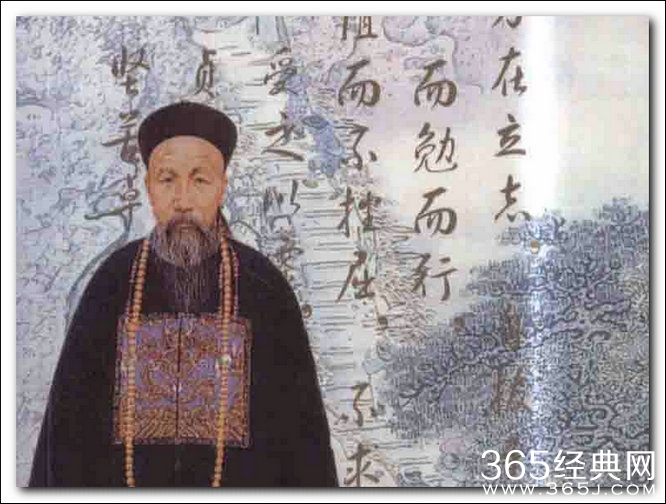 在立志
而勉而行
而不挫屈 不求
受之以
贞
坚苦卓
365经典网
WWW.365J.COM